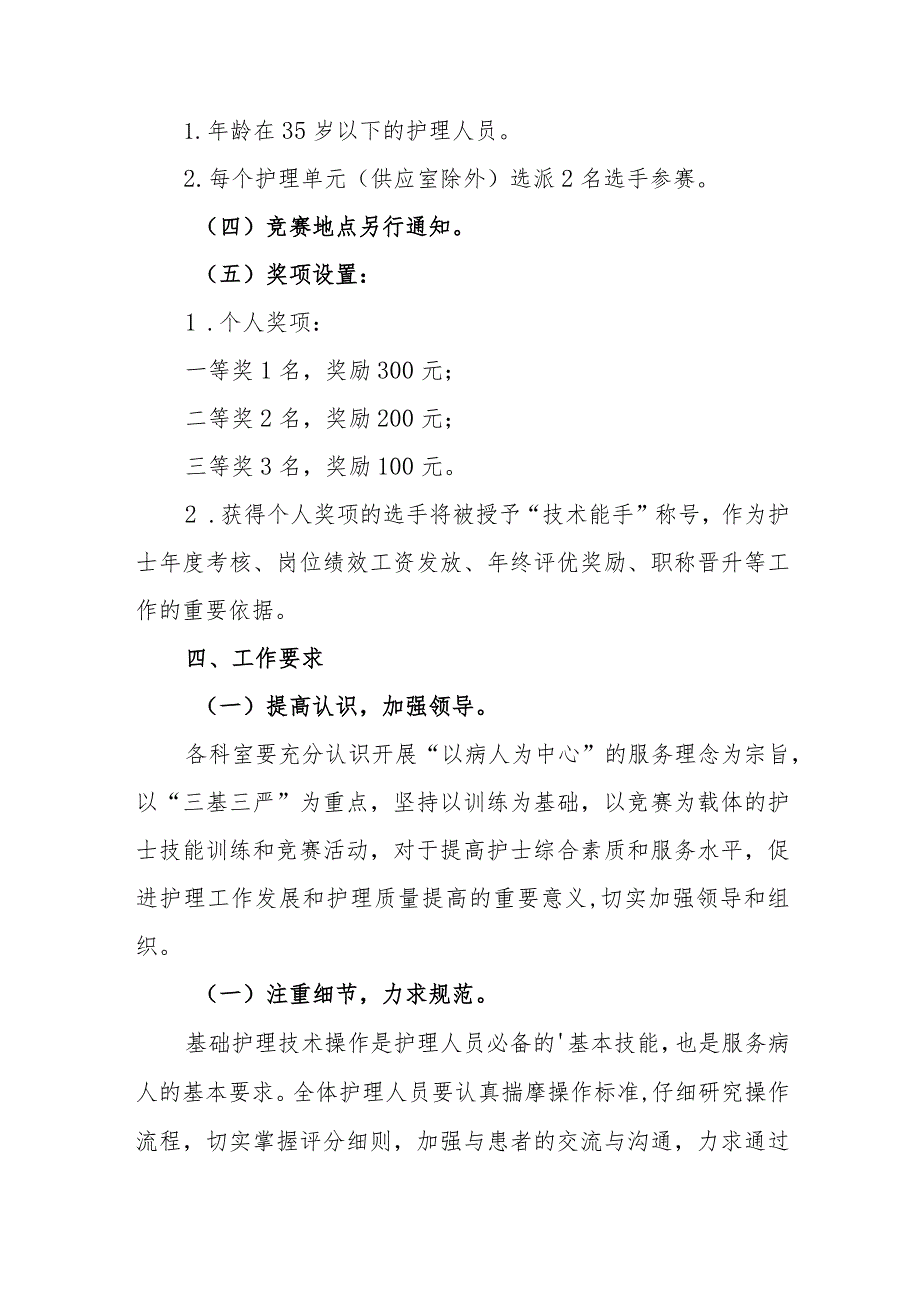 1.年龄在35岁以下的护理人员。
2.每个护理单元（供应室除外）选派2名选手参赛。
（四）竞赛地点另行通知。
（五）奖项设置：
1.个人奖项：
一等奖1名，奖励300元；
二等奖2名，奖励200元；
三等奖3名，奖励100元。
2.获得个人奖项的选手将被授予“技术能手”称号，作为护
士年度考核、岗位绩效工资发放、年终评优奖励、职称晋升等工
作的重要依据。
四、工作要求
（一）提高认识，加强领导。
各科室要充分认识开展“以病人为中心”的服务理念为宗旨，
以“三基三严”为重点，坚持以训练为基础，以竞赛为载体的护
士技能训练和竞赛活动，对于提高护士综合素质和服务水平，促
进护理工作发展和护理质量提高的重要意义,切实加强领导和组
织。
（一）注重细节，力求规范。
基础护理技术操作是护理人员必备的'基本技能,也是服务病
人的基本要求。全体护理人员要认真揣摩操作标准,仔细研究操作
流程，切实掌握评分细则，加强与患者的交流与沟通，力求通过